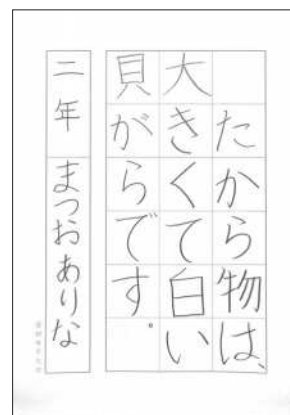 たから物は、
大きくて白い
貝がらです。
二年 まつおありな